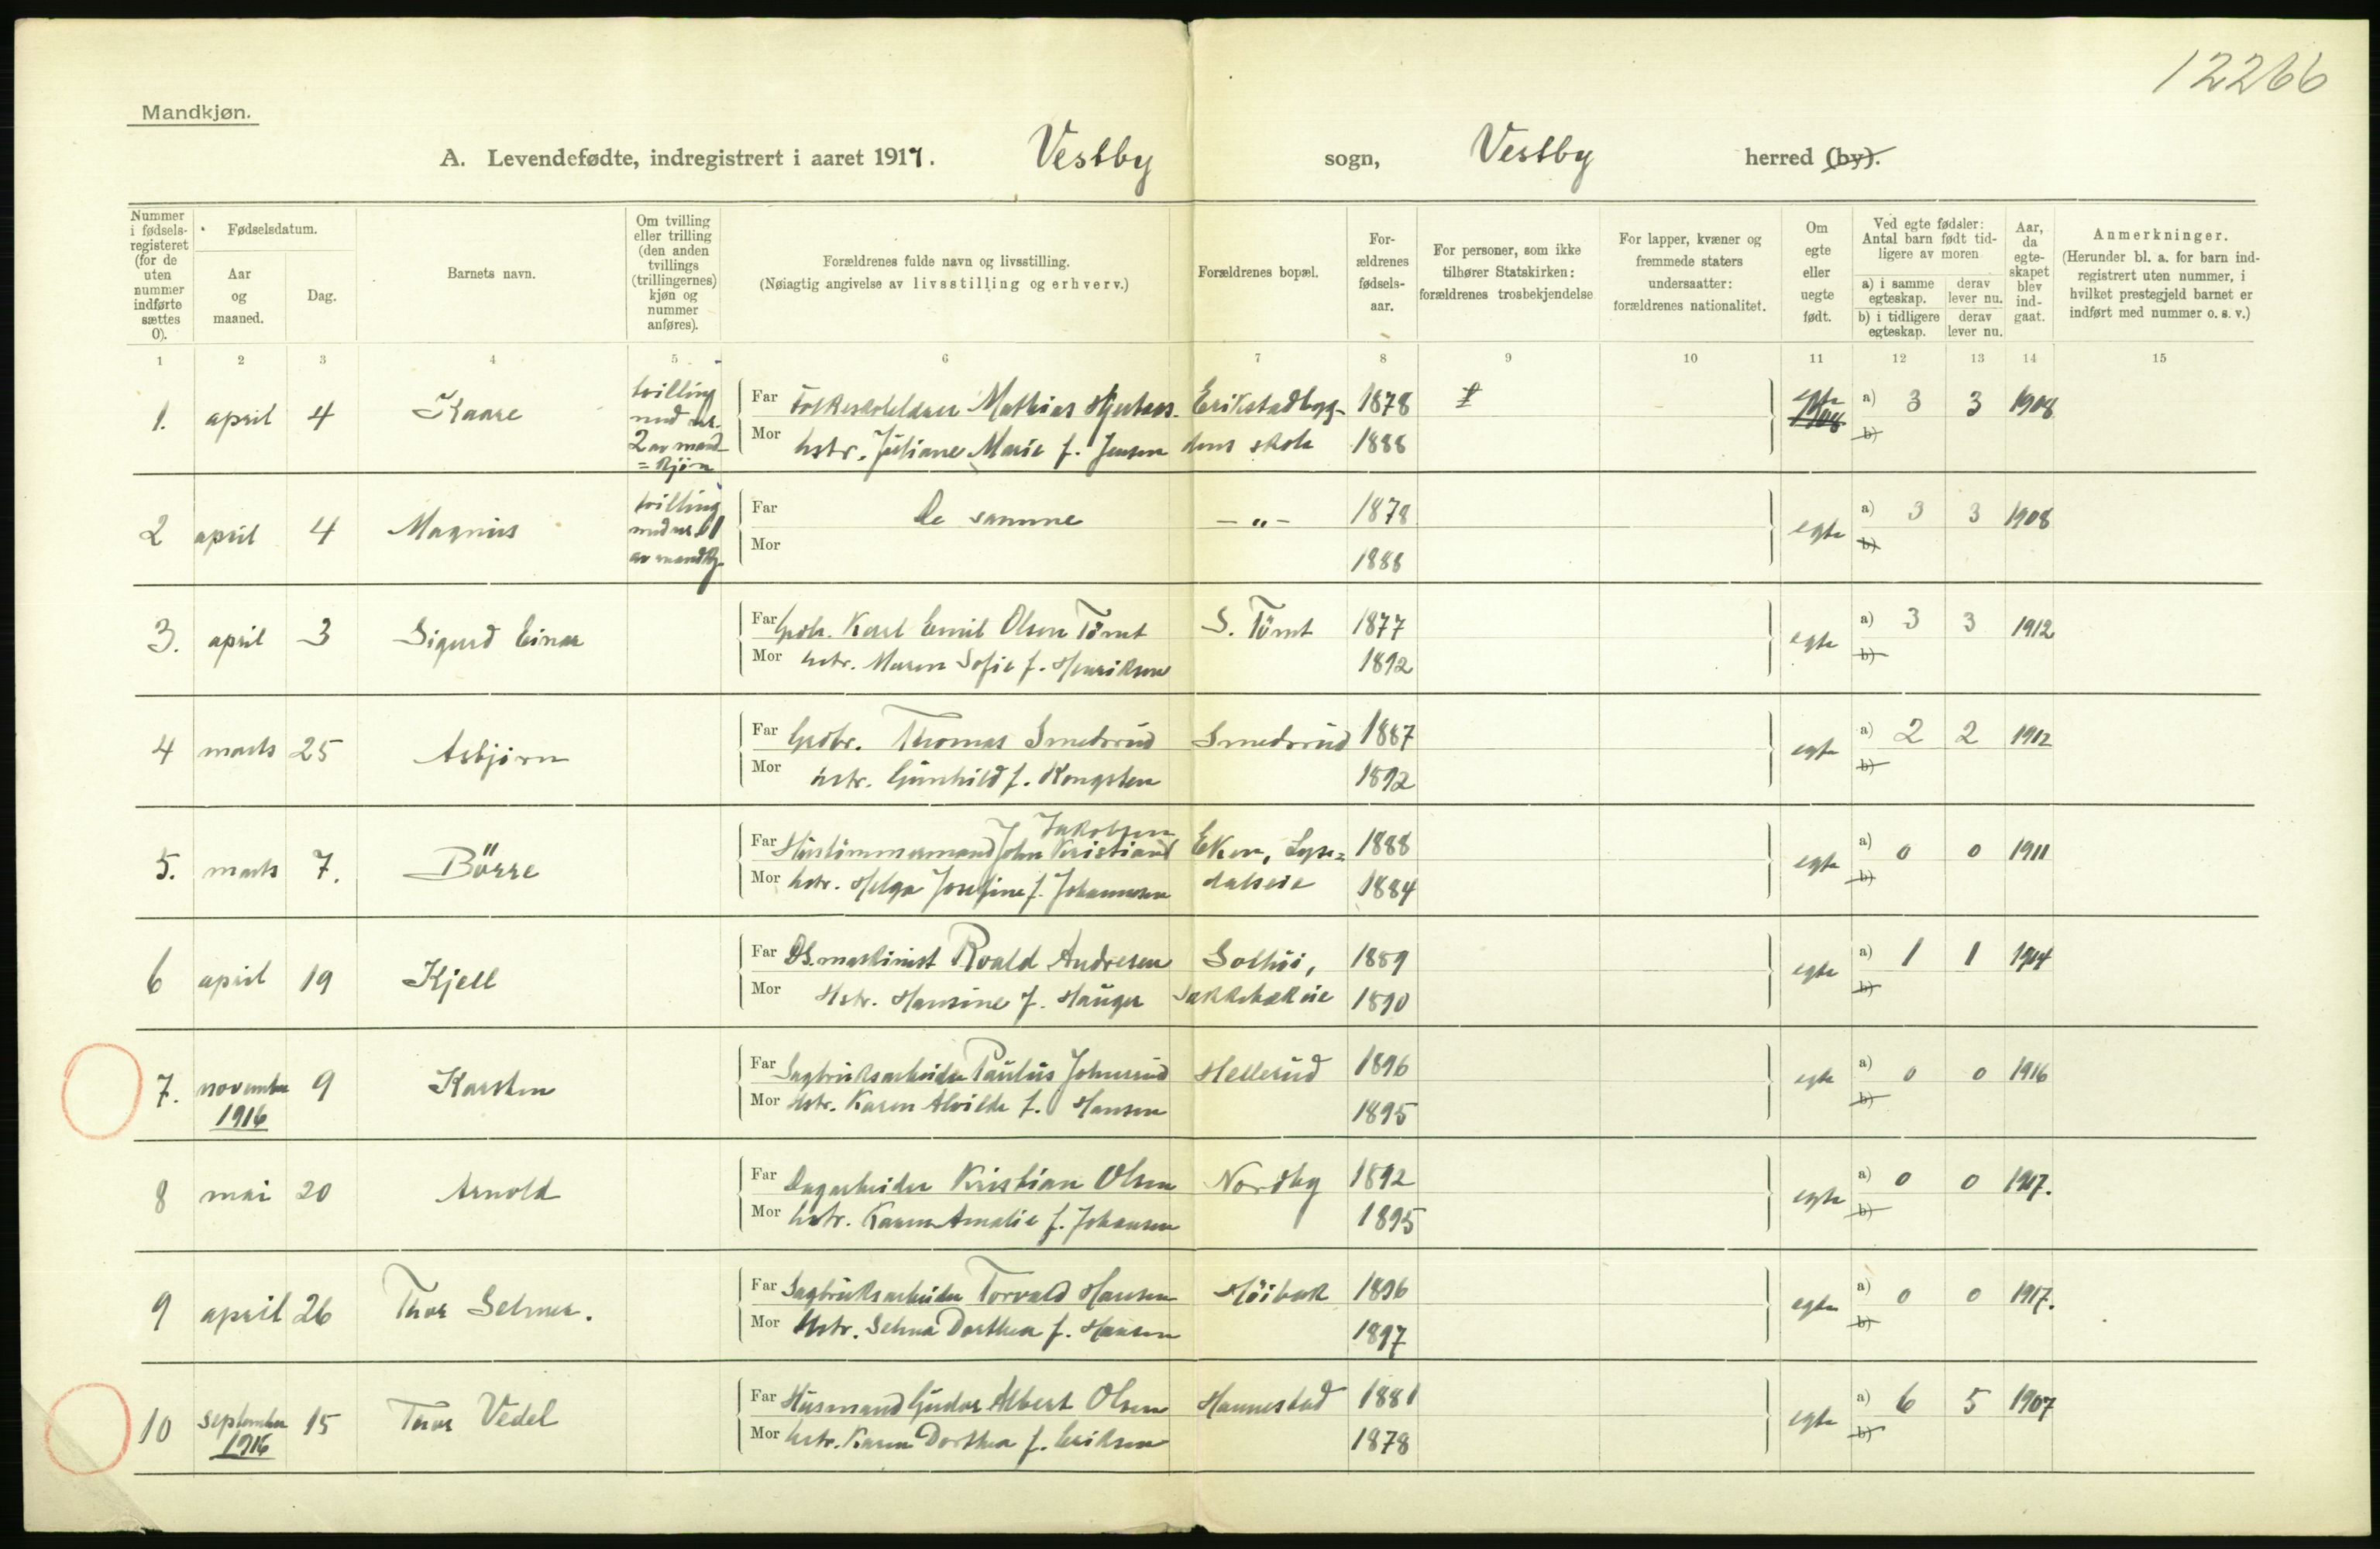 12266
Mandkjøn.
A. Levendefødte, indregistrert i aaret 1917. Vestby sogn, Vestby herred (by).
Nummer i fødsels-registeret (for de uten nummer indførte sættes 0).
Fødselsdatum.
Aar og maaned.
Dag.
Barnets navn.
Om tvilling eller trilling (den anden tvillings (trillingernes) kjøn og nummer anføres).
Forældrenes fulde navn og livsstilling.
(Nøiagtig angivelse av livsstilling og erhverv.)
Forældrenes bopæl.
For-ældrenes fødsels-aar.
For personer, som ikke tilhører Statskirken: forældrenes trosbekjendelse
For lapper, kvæner og fremmede staters undersaatter: forældrenes nationalitet.
Om egte eller uegte født.
Ved egte fødsler: Antal barn født tid-ligere av moren
a) i samme egteskap.
derav lever nu.
b) i tidligere egteskap.
derav lever nu.
Aar, da egte-skapet blev ind-gaat.
Anmerkninger.
(Herunder bl. a. for barn ind-registrert uten nummer, i hvilket prestegjeld barnet er indført med nummer o. s. v.)
1 2 3 4 5 6 7 8 9 10 11 12 13 14 15
1. april 4 Kaare tvilling med nr. 2 av mand=kjøn Far Mathias Erikstadbyg- 1878 egte a) 3 3 1908
Mor hstr. Juliane Marie f. Jensen dens skole 1888 b)
2 april 4 Magnus tvilling med nr. 1 av mandkj. Far De samme — „ — 1878 egte a) 3 3 1908
Mor 1888 b)
3. april 3 Sigurd Einar Far Gbr. Karl Emil Olsen Tömt S. Tömt 1877 egte a) 3 3 1912
Mor hstr. Maren Sofie f. Henriksen 1892 b)
4 marts 25 Asbjørn Far Gbr. Thomas Smedsrud Smedsrud 1887 egte a) 2 2 1912
Mor hstr. Gunhild f. Kongsten 1892 b)
Jakobsen
5. marts 7. Börre Far Hustimmermand John Kristian Eken, Lyse= 1888 egte a) 0 0 1911
Mor hstr. Helga Josefine f. Johannesen dalseie 1884 b)
6 april 19 Kjell Far DS.maskinist Roald Andresen Solhöi, 1889 egte a) 1 1 1914
Mor Hstr. Hansine f. Hauger 1890 b)
7. november 1916 9 Karsten Far Sagbruksarbeider Paulus Johnsrud Hellerud 1896 egte a) 0 0 1916
Mor Hstr. Karen Alvilde f. Hansen 1895 b)
8 mai 20 Arnold Far Dagarbeider Kristian Olsen Nordby 1892 egte a) 0 0 1917.
Mor hstr. Karen Amalie f. Johansen 1895 b)
9 april 26 Thor Selmer. Far Sagbruksarbeider Torvald Hansen Höibak 1896 egte a) 0 0 1917.
Mor Hstr. Selma Dorthea f. Hansen 1897 b)
10 september 1916 15 Thor Vedel Far Husmand Gudor Albert Olsen Hannestad 1881 egte a) 6 5 1907
Mor hstr. Karen Dorthea f. Eriksen 1878 b)